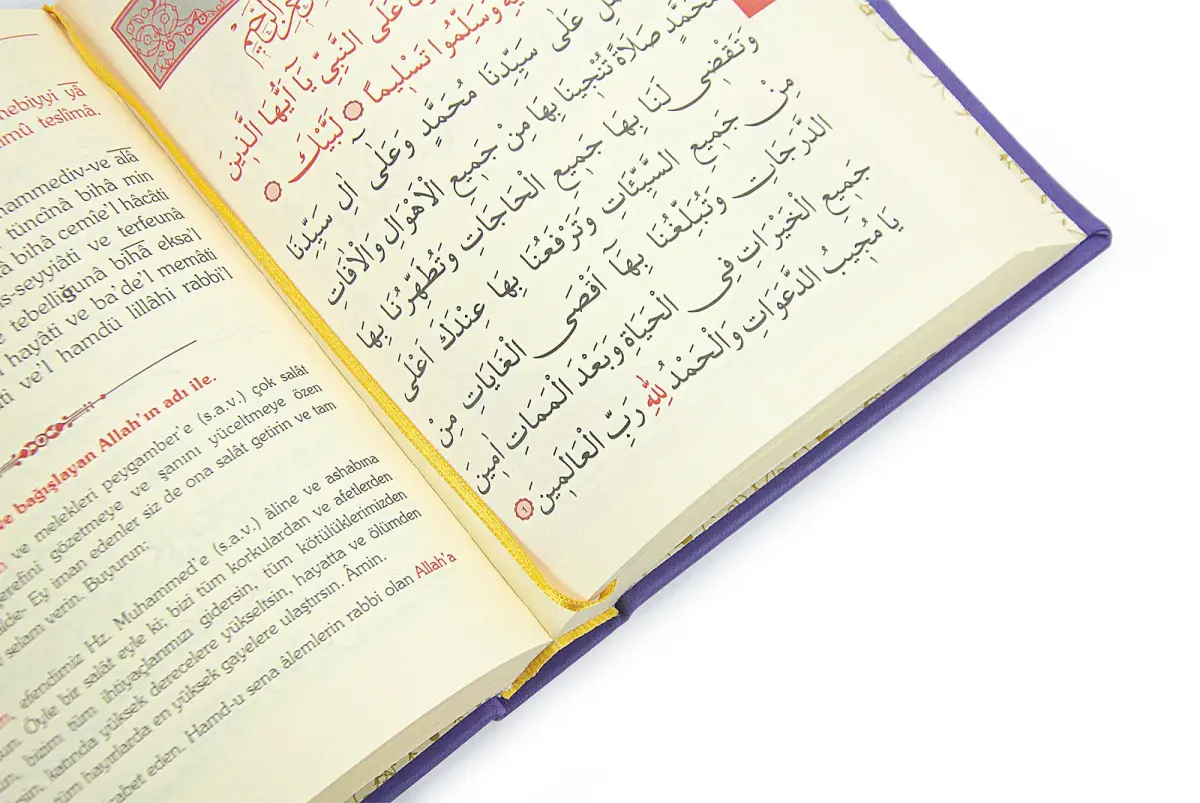 nebiyyi yâ
teslîmâ.
ve alâ
tüncînâ bihâ min
bihâ cemîe'l hâcâti
ve terfeunâ
tebelliğunâ bihâ eksa'l
hayâti ve ba'de'l memâti
ve'l hamdü lillâhi rabbi'l
ve bağışlayan Allah'ın adı ile.
ve melekleri peygamber'e (s.a.v.) çok salât
gözetmeye ve şanını yüceltmeye özen
Ey iman edenler siz de ona salât getirin ve tam
selam verin. Buyurun;
efendimiz Hz. Muhammed'e (s.a.v.) âline ve ashabına
Öyle bir salât eyle ki; bizi tüm korkulardan ve afetlerden
bizim tüm ihtiyaçlarımızı gidersin, tüm kötülüklerimizden
katında yüksek derecelere yükseltsin, hayatta ve ölümden
tüm hayırlarda en yüksek gayelere ulaştırsın. Âmin.
eden. Hamd-u sena âlemlerin rabbi olan Allah'a
عَلَى النَّبِيِّ يَآ اَيُّهَا الَّذِينَ
وَسَلِّمُوا تَسْلِيمًا لَبَّيْكَ
عَلٰى سَيِّدِنَا مُحَمَّدٍ وَعَلٰٓى اٰلِ سَيِّدِنَا
صَلَاةً تُنْجِينَا بِهَا مِنْ جَمِيعِ الْاَهْوَالِ وَالْاٰفَاتِ
وَتَقْضِى لَنَا بِهَا جَمِيعَ الْحَاجَاتِ وَتُطَهِّرُنَا بِهَا
مِنْ جَمِيعِ السَّيِّئَاتِ وَتَرْفَعُنَا بِهَا عِنْدَكَ اَعْلَى
الدَّرَجَاتِ وَتُبَلِّغُنَا بِهَآ اَقْصَى الْغَايَاتِ مِنْ
جَمِيعِ الْخَيْرَاتِ فِى الْحَيَاةِ وَبَعْدَ الْمَمَاتِ اٰمِينَ
يَا مُجِيبُ الدَّعَوَاتِ وَالْحَمْدُ لِلّٰهِ رَبِّ الْعَالَمِينَ ١